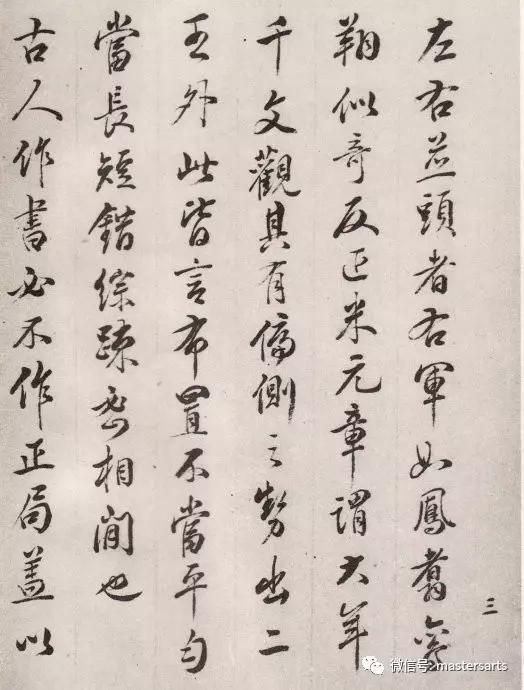 三
左右並頭者右軍如鳳翥鸞
翔似奇反正米元章謂大年
千文觀其有偏側之勢出二
王外此皆言布置不當平勻
當長短錯綜疎密相間也
古人作書必不作正局蓋以
微信号: mastersarts